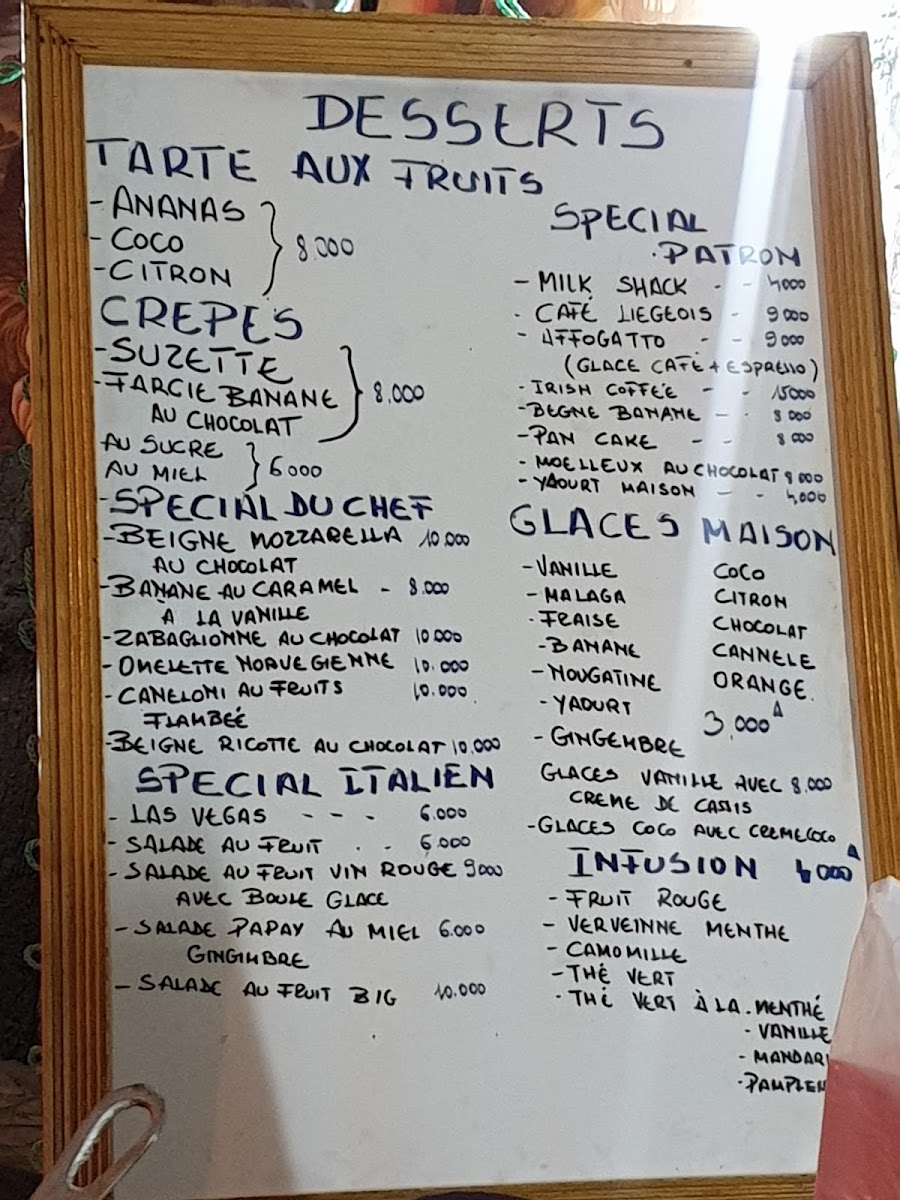 DESSERTS
TARTE AUX FRUITS
- ANANAS
- COCO 8.000
- CITRON
CREPES
- SUZETTE
- FARCIE BANANE 8.000
AU CHOCOLAT
AU SUCRE
AU MIEL 6000
- SPECIAL DU CHEF
- BEIGNE MOZZARELLA 10.000
AU CHOCOLAT
- BANANE AU CARAMEL - 8.000
À LA VANILLE
- ZABAGLIONNE AU CHOCOLAT 10.000
- OMELETTE NORVEGIENNE 10.000
- CANELONI AU FRUITS 10.000
FLAMBEÉ
- BEIGNE RICOTTE AU CHOCOLAT 10.000
SPECIAL ITALIEN
- LAS VEGAS - - - 6.000
- SALADE AU FRUIT - - 6.000
- SALADE AU FRUIT VIN ROUGE 9000
AVEC BOULE GLACE
- SALADE PAPAY AU MIEL 6.000
GINGIMBRE
- SALADE AU FRUIT BIG 10.000
SPECIAL
.PATRON
- MILK SHACK - -
- CAFÉ LIEGEOIS - 9000
- AFFOGATTO - - 9000
(GLACE CAFÉ + ESPRESSO)
- IRISH COFFEE - - 15000
- BEGNE BANANE - - 8000
- PAN CAKE - - 8000
- MOELLEUX AU CHOCOLAT 8000
- YAOURT MAISON - - 4,000
GLACES MAISON
- VANILLE COCO
- MALAGA CITRON
- FRAISE CHOCOLAT
- BANANE CANNELE
- NOUGATINE ORANGE.
- YAOURT 3.000
- GINGEMBRE
GLACES VANILLE AVEC 8.000
CREME DE CASSIS
- GLACES COCO AVEC CREME COCO
INFUSION 4000
- FRUIT ROUGE
- VERVEINNE MENTHE
- CAMOMILLE
- THÉ VERT
- THÉ VERT À LA . MENTHÉ
- VANILLE
- MANDARI
- PAMPLEM